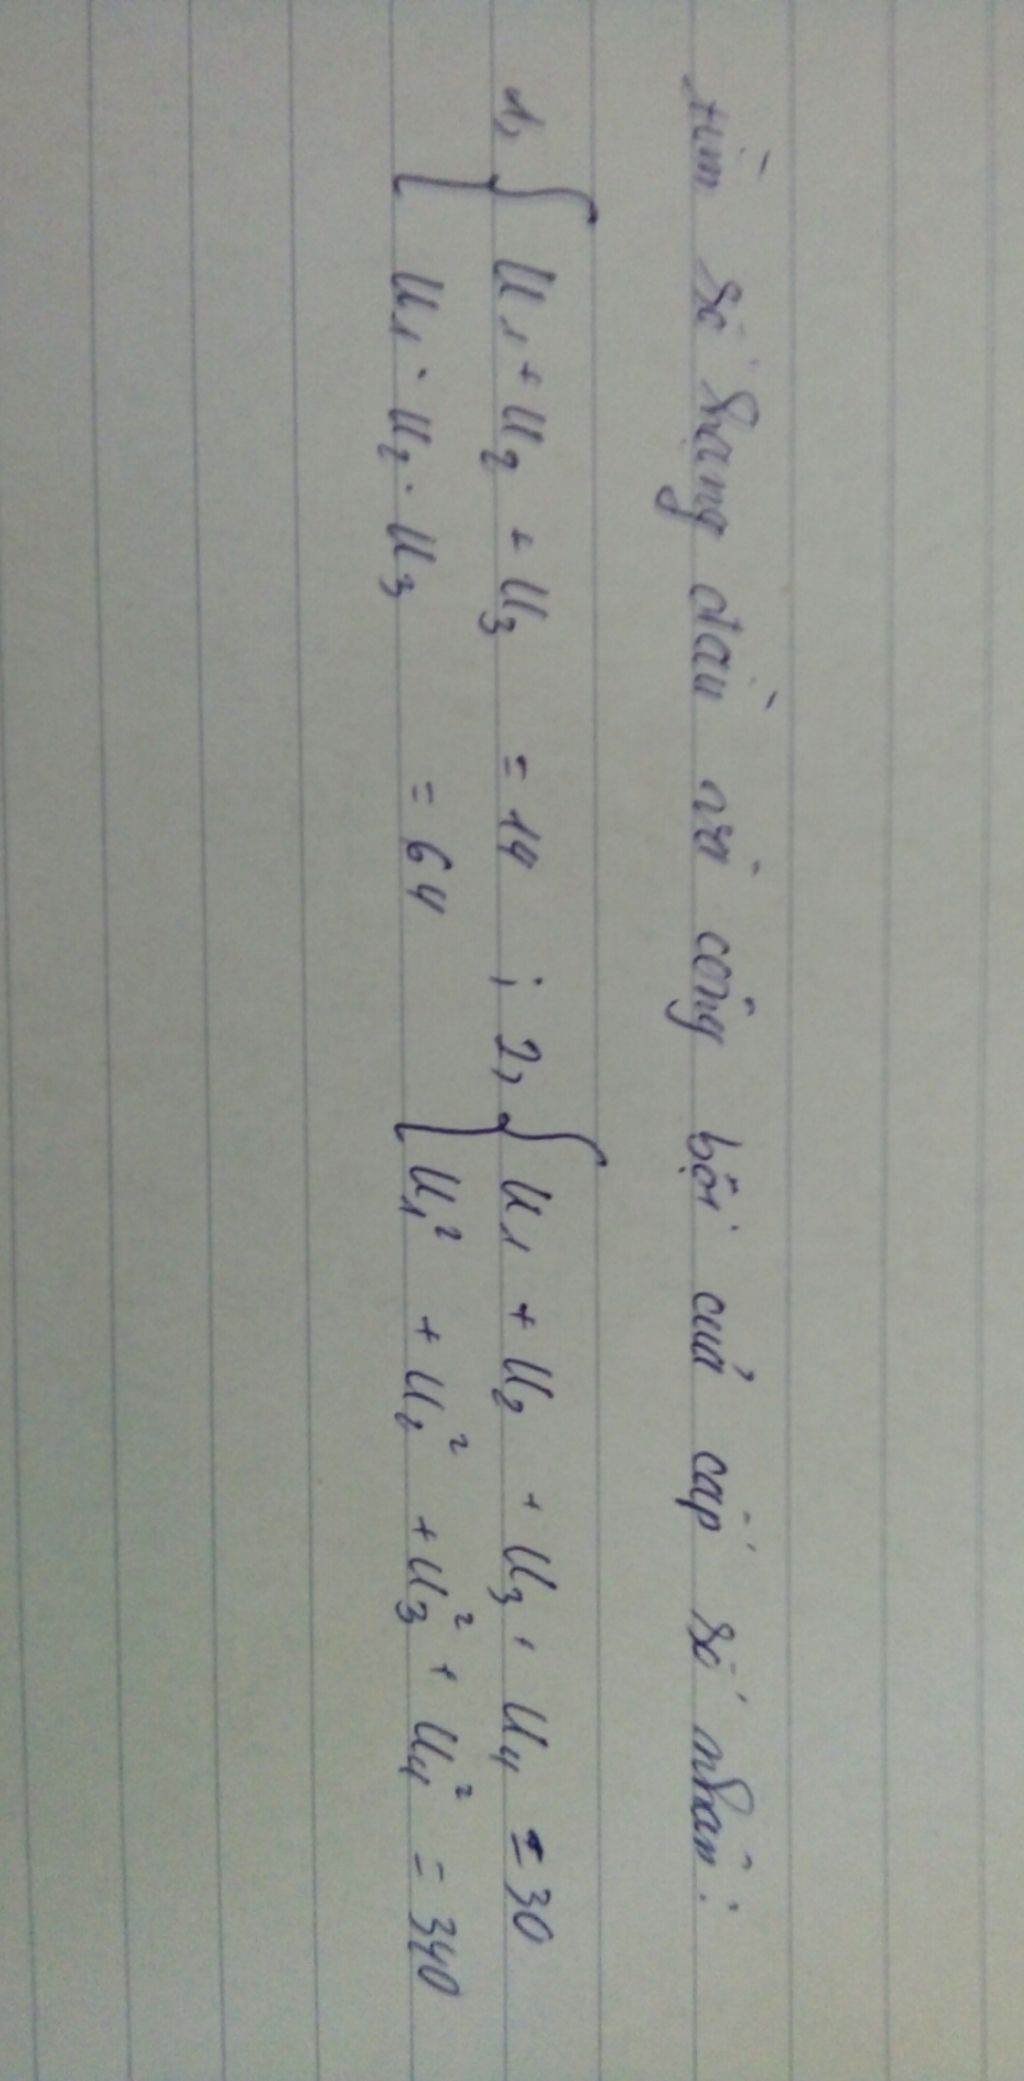 tìm số hạng đầu và công bội của cấp số nhân:
1, { U₁ + U₂ + U₃ = 14 ; 2, { U₁ + U₂ + U₃ + U₄ = 30
U₁ . U₂ . U₃ = 64 U₁² + U₂² + U₃² + U₄² = 340